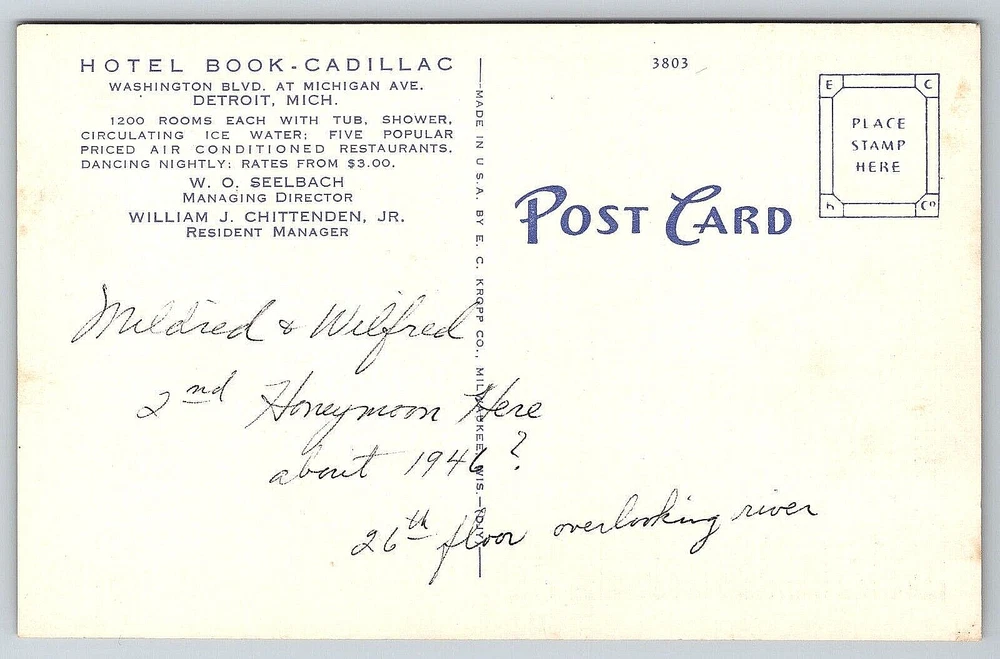 HOTEL BOOK-CADILLAC
WASHINGTON BLVD. AT MICHIGAN AVE.
DETROIT, MICH.
1200 ROOMS EACH WITH TUB, SHOWER,
CIRCULATING ICE WATER; FIVE POPULAR
PRICED AIR CONDITIONED RESTAURANTS.
DANCING NIGHTLY; RATES FROM $3.00.
W. O. SEELBACH
MANAGING DIRECTOR
WILLIAM J. CHITTENDEN, JR.
RESIDENT MANAGER
—MADE IN U.S.A. BY E. C. KROPP CO., MILWAUKEE, WIS.—
3803
E C
PLACE
STAMP
HERE
K Co
POST CARD
Mildred & Wilfred
2nd Honeymoon Here
about 1946?
26th floor overlooking river